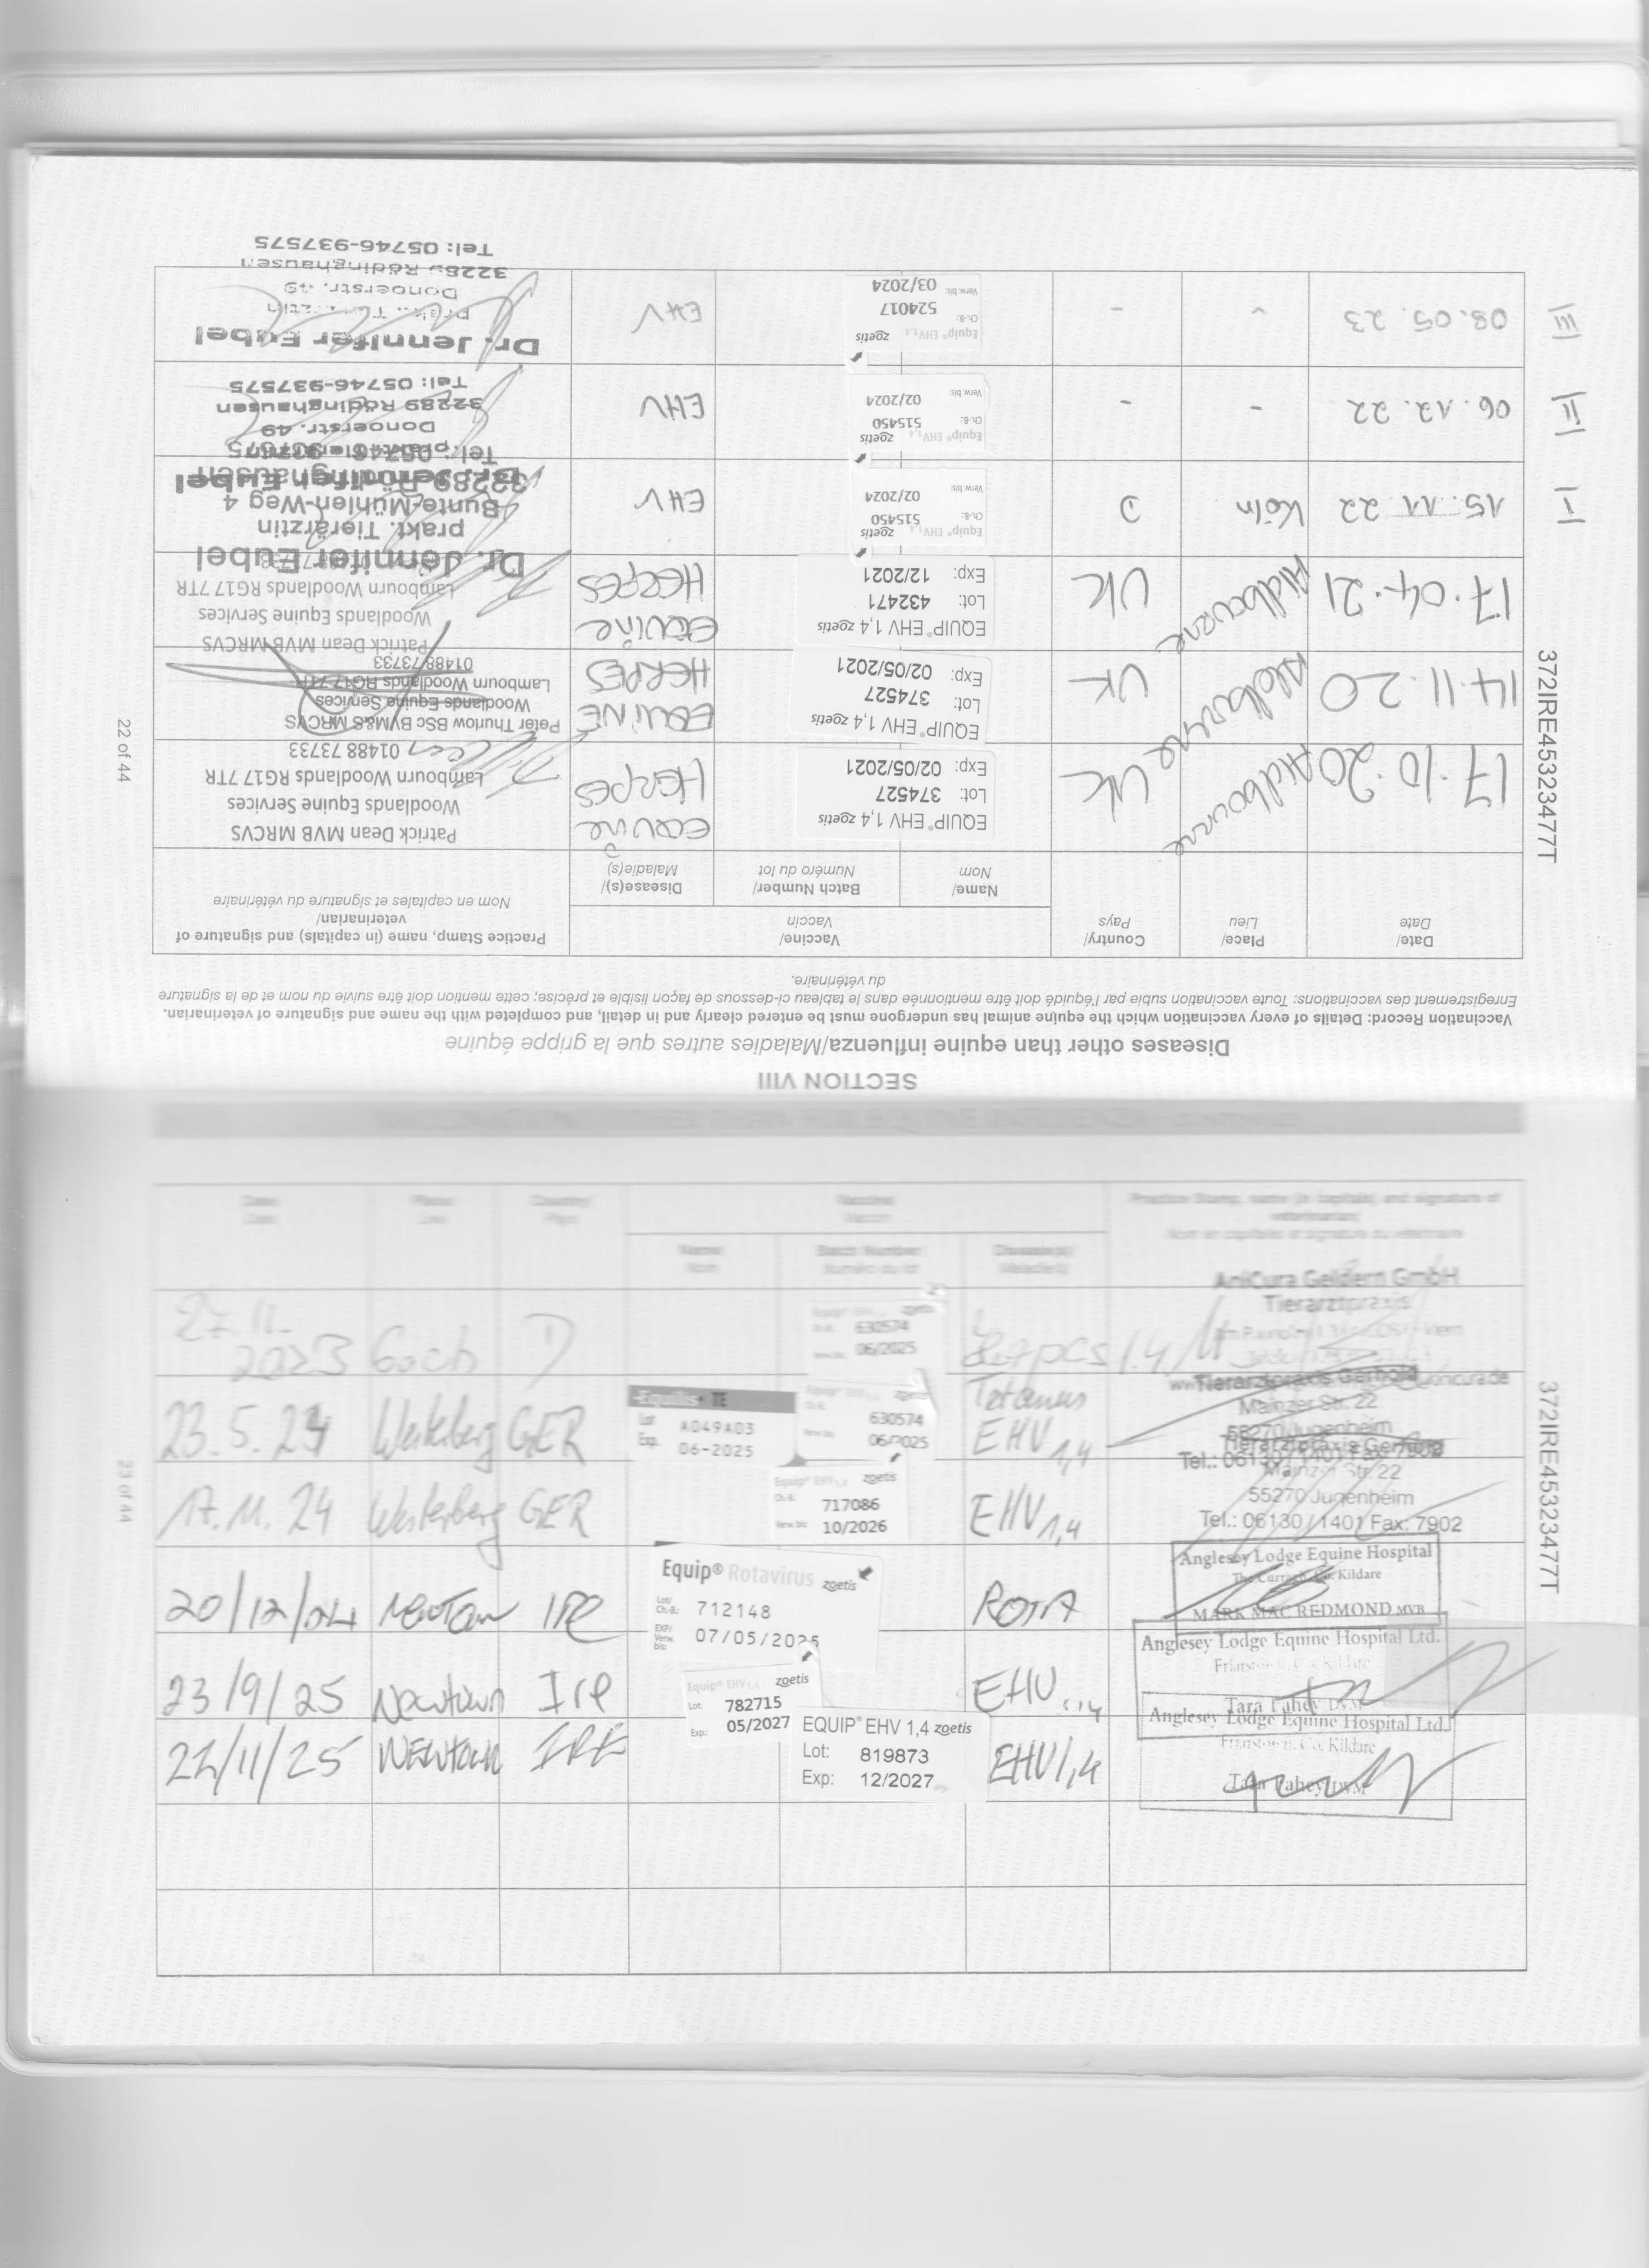 SECTION VIII
Diseases other than equine influenza/Maladies autres que la grippe équine
Vaccination Record: Details of every vaccination which the equine animal has undergone must be entered clearly and in detail, and completed with the name and signature of veterinarian.
Enregistrement des vaccinations: Toute vaccination subie par l'équidé doit être mentionnée dans le tableau ci-dessous de façon lisible et précise; cette mention doit être suivie du nom et de la signature
du vétérinaire.
Date/ Place/ Country/ Vaccine/ Practice Stamp, name (in capitals) and signature of
Date Lieu Pays Vaccin veterinarian/
Name/ Batch Number/ Disease(s)/ Nom en capitales et signature du vétérinaire
Nom Numéro du lot Maladie(s)
17.10.20 Aldbourne UK
EQUIP® EHV 1,4 zoetis
Lot: 374527
Exp: 02/05/2021
Equine
Herpes
Patrick Dean MVB MRCVS
Woodlands Equine Services
Lambourn Woodlands RG17 7TR
01488 73733
14.11.20 Aldbourne UK
EQUIP® EHV 1,4 zoetis
Lot: 374527
Exp: 02/05/2021
EQUINE
HERPES
Peter Thurlow BSc BVM&S MRCVS
Woodlands Equine Services
Lambourn Woodlands RG17 7TR
01488 73733
17.04.21 Aldbourne UK
EQUIP® EHV 1,4 zoetis
Lot: 432471
Exp: 12/2021
Equine
HERPES
Patrick Dean MVB MRCVS
Woodlands Equine Services
Lambourn Woodlands RG17 7TR
I 15.11.22 Köln D
Equip® EHV 1,4 zoetis
Ch.-B.: 515450
Verw. bis: 02/2024
EHV
Dr. Jennifer Eubel
prakt. Tierärztin
Bunte-Mühlen-Weg 4
32289 Rödinghausen
II 06.12.22 - -
Equip® EHV 1,4 zoetis
Ch.-B.: 515450
Verw. bis: 02/2024
EHV
Dr. Jennifer Eubel
Donoerstr. 49
32289 Rödinghausen
Tel: 05746-937575
III 08.05.23 - -
Equip® EHV 1,4 zoetis
Ch.-B.: 524017
Verw. bis: 03/2024
EHV
Dr. Jennifer Eubel
prakt. Tierärztin
Donoerstr. 49
32289 Rödinghausen
Tel: 05746-937575
372IRE45323477T
22 of 44
Date Place Country Vaccine Practice Stamp, name (in capitals) and signature of
Date Lieu Pays Vaccin veterinarian
Name Batch Number Disease(s) Nom en capitales et signature du vétérinaire
Nom Numéro du lot Maladie(s)
27.11.
2023 Goch D
630574
06/2025
Herpes 1.4
AniCura Geldern GmbH
Tierarztpraxis
23.5.24 Westerberg GER
Equilis® TE
Lot A049A03
Exp. 06-2025
Equip® EHV 1,4 zoetis
630574
06/2025
Tetanus
EHV 1,4
Tierarztpraxis Gerhold
Mainzer Str. 22
55270 Jugenheim
17.11.24 Westerberg GER
Equip® EHV 1,4 zoetis
Ch.-B.: 717086
Verw. bis: 10/2026
EHV 1,4
Tierarztpraxis Gerhold
Mainzer Str. 22
55270 Jugenheim
Tel.: 06130 / 1401 Fax: 7902
20/12/24 Newtown IRE
Equip® Rotavirus zoetis
Lot/ Ch.-B.: 712148
EXP/ Verw. bis: 07/05/2025
ROTA
Anglesey Lodge Equine Hospital
The Curragh, Co. Kildare
MARK MAC REDMOND MVB
23/9/25 Newtown Ire
Equip® EHV 1,4 zoetis
Lot: 782715
Exp.: 05/2027
EHV 1,4
Anglesey Lodge Equine Hospital Ltd.
Friarstown, Co. Kildare
Tara Fahey DVM
22/11/25 Newtown IRE
EQUIP® EHV 1,4 zoetis
Lot: 819873
Exp: 12/2027
EHV1,4
Anglesey Lodge Equine Hospital Ltd.
Friarstown, Co. Kildare
Tara Fahey DVM
372IRE45323477T
23 of 44